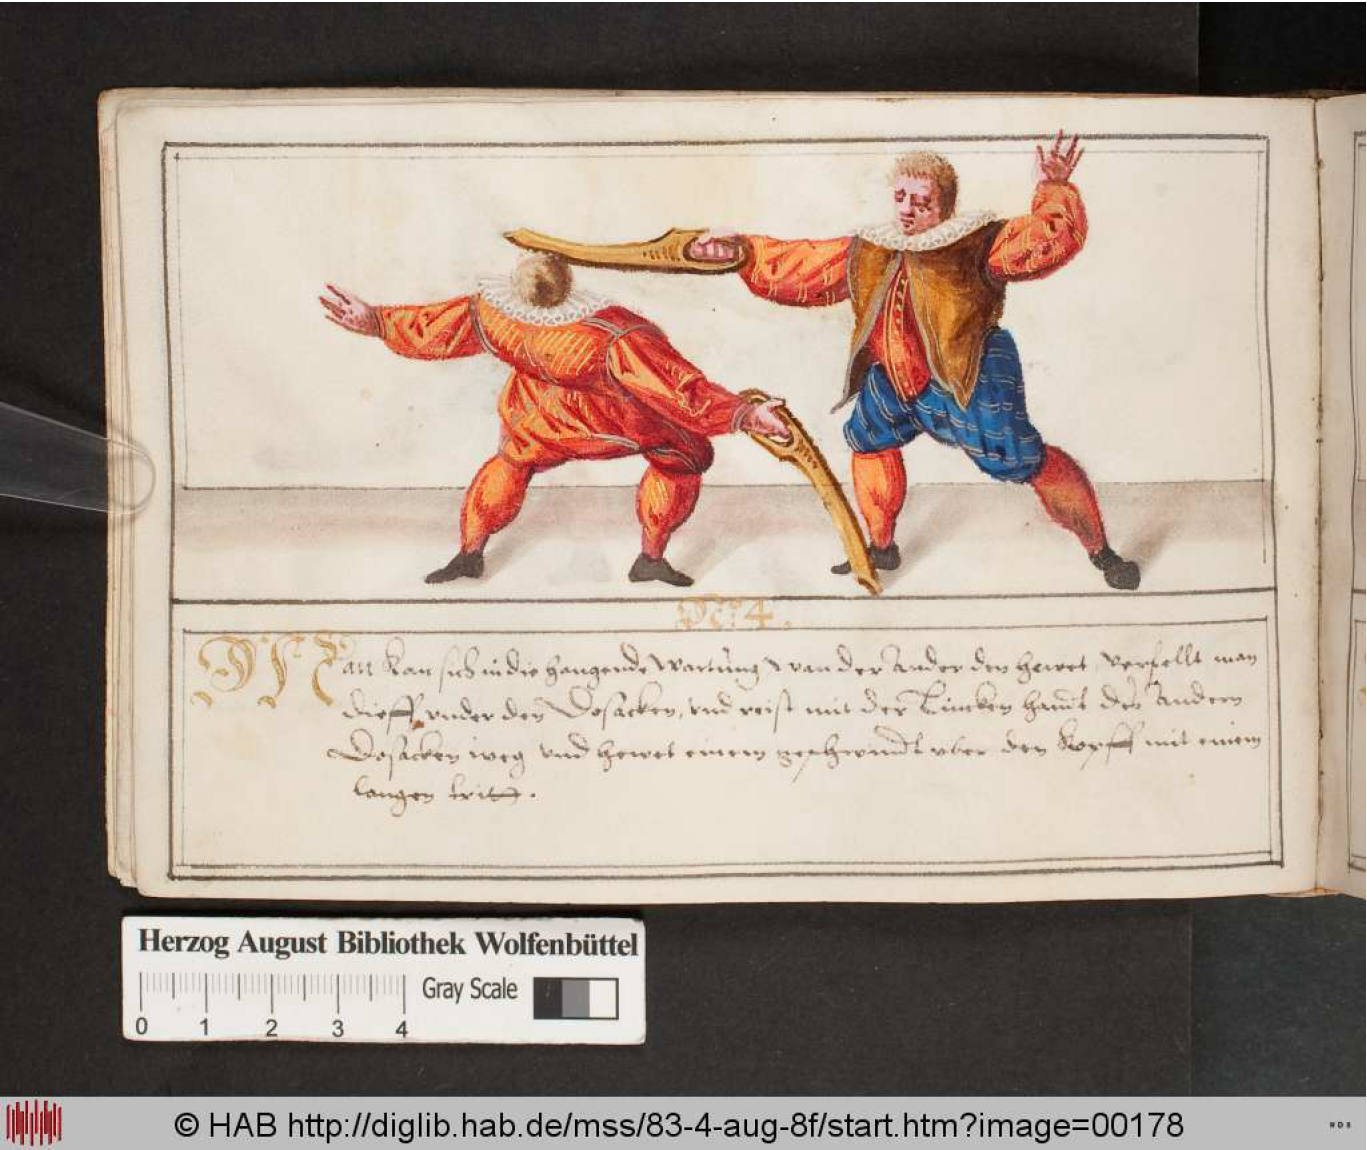 No 4.
Man kan sich in die hangende Wartung wan der ander den hewet, verfellt man
dieff vnder den Dosacken, vnd reist mit der Lincken handt des Andern
Dosacken weg vnd hewet einem geschwindt vber den Kopff mit einem
langen tritt.
Herzog August Bibliothek Wolfenbüttel
Gray Scale
0 1 2 3 4
© HAB http://diglib.hab.de/mss/83-4-aug-8f/start.htm?image=00178